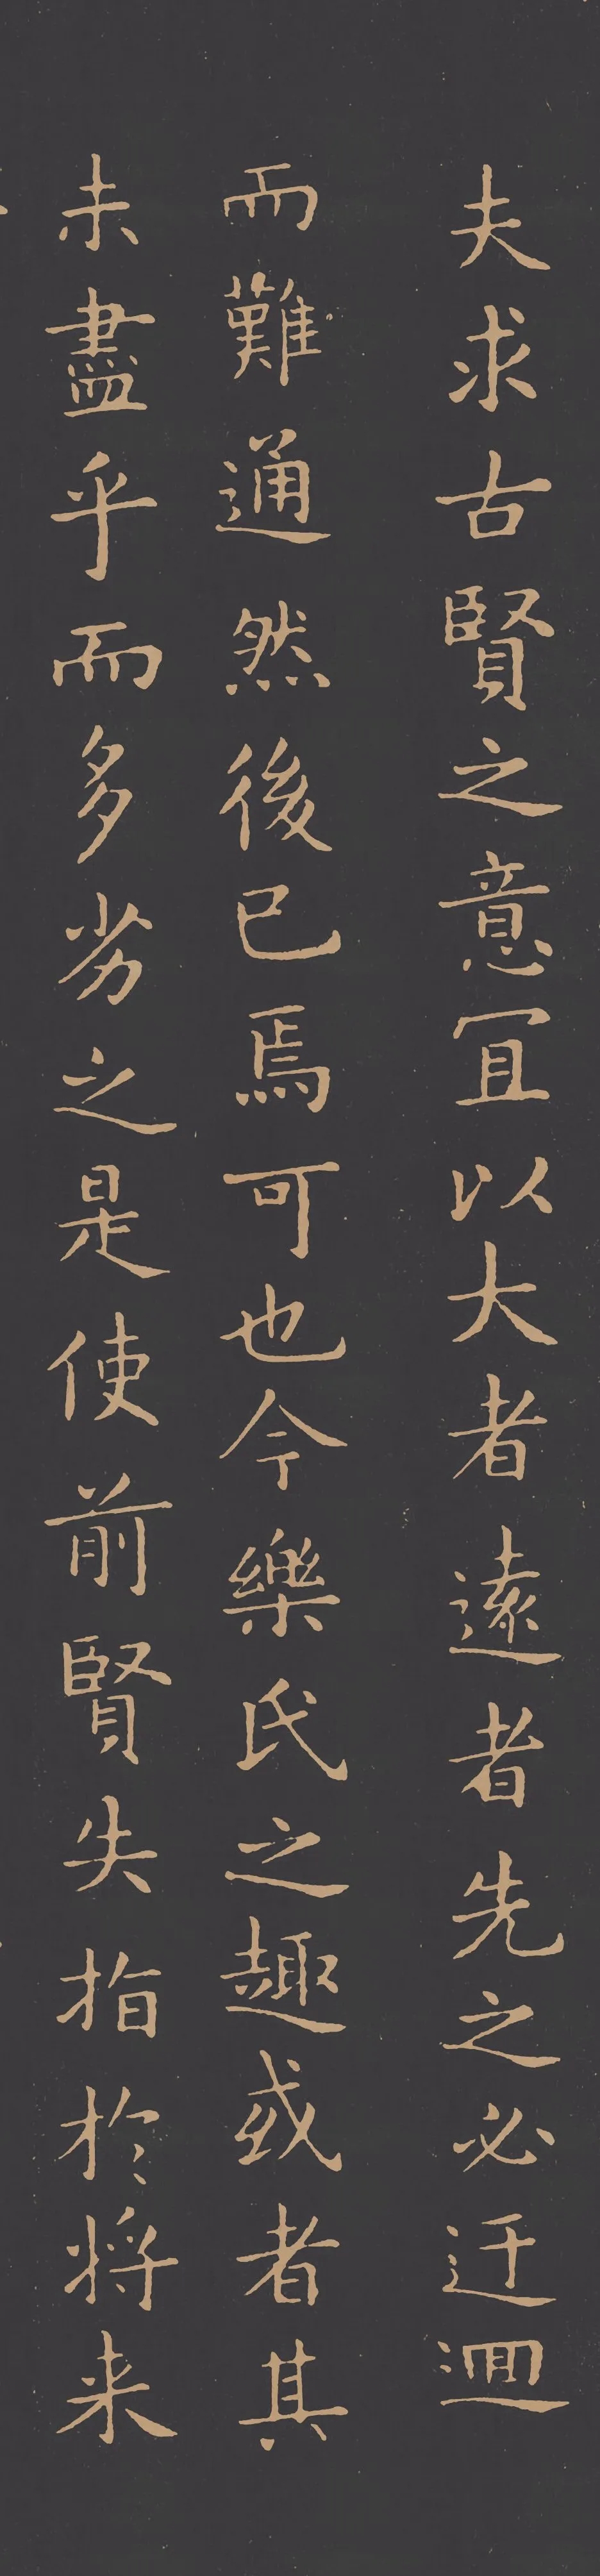 夫求古賢之意宜以大者遠者先之必迂迴
而難通然後已焉可也今樂氏之趣或者其
未盡乎而多劣之是使前賢失指於将来